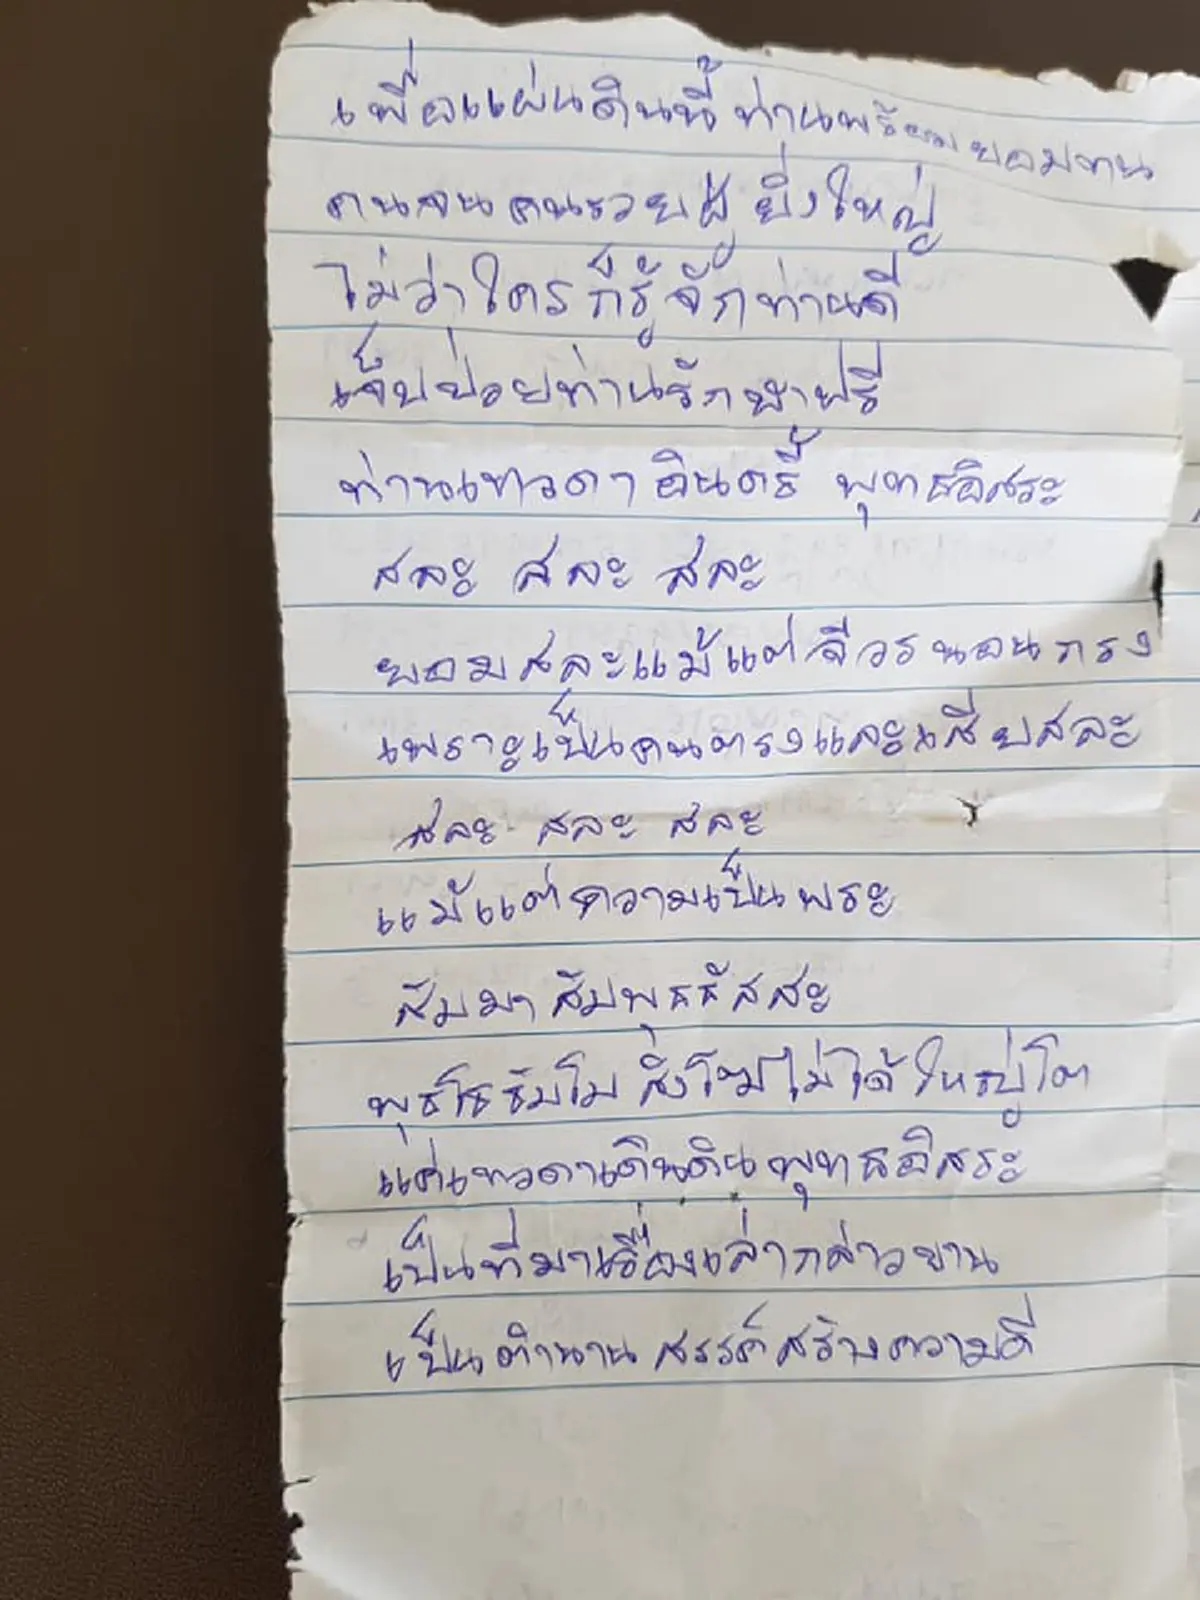 เพื่อแผ่นดินนี้ ท่านพร้อม ยอมทน
คนจน คนรวย ผู้ ยิ่งใหญ่
ไม่ว่าใคร ก็รู้จักท่านดี
เจ็บป่วยท่านรักษาฟรี
ท่านเทวดา อินตรี พุทธอิสระ
สละ สละ สละ
ยอมสละแม้แต่จีวร นอนกรง
เพราะเป็นคนตรงและเสียสละ
สละ สละ สละ
แม้แต่ความเป็นพระ
สัมมา สัมพุธธัสสะ
พุธโธ ธัมโม สังโฆ ไม่ได้ ใหญ่โต
แค่เทวดาเดินดิน พุทธอิสระ
เป็นที่มาเรื่องเล่ากล่าวขาน
เป็นตำนาน สรรค์สร้างความดี